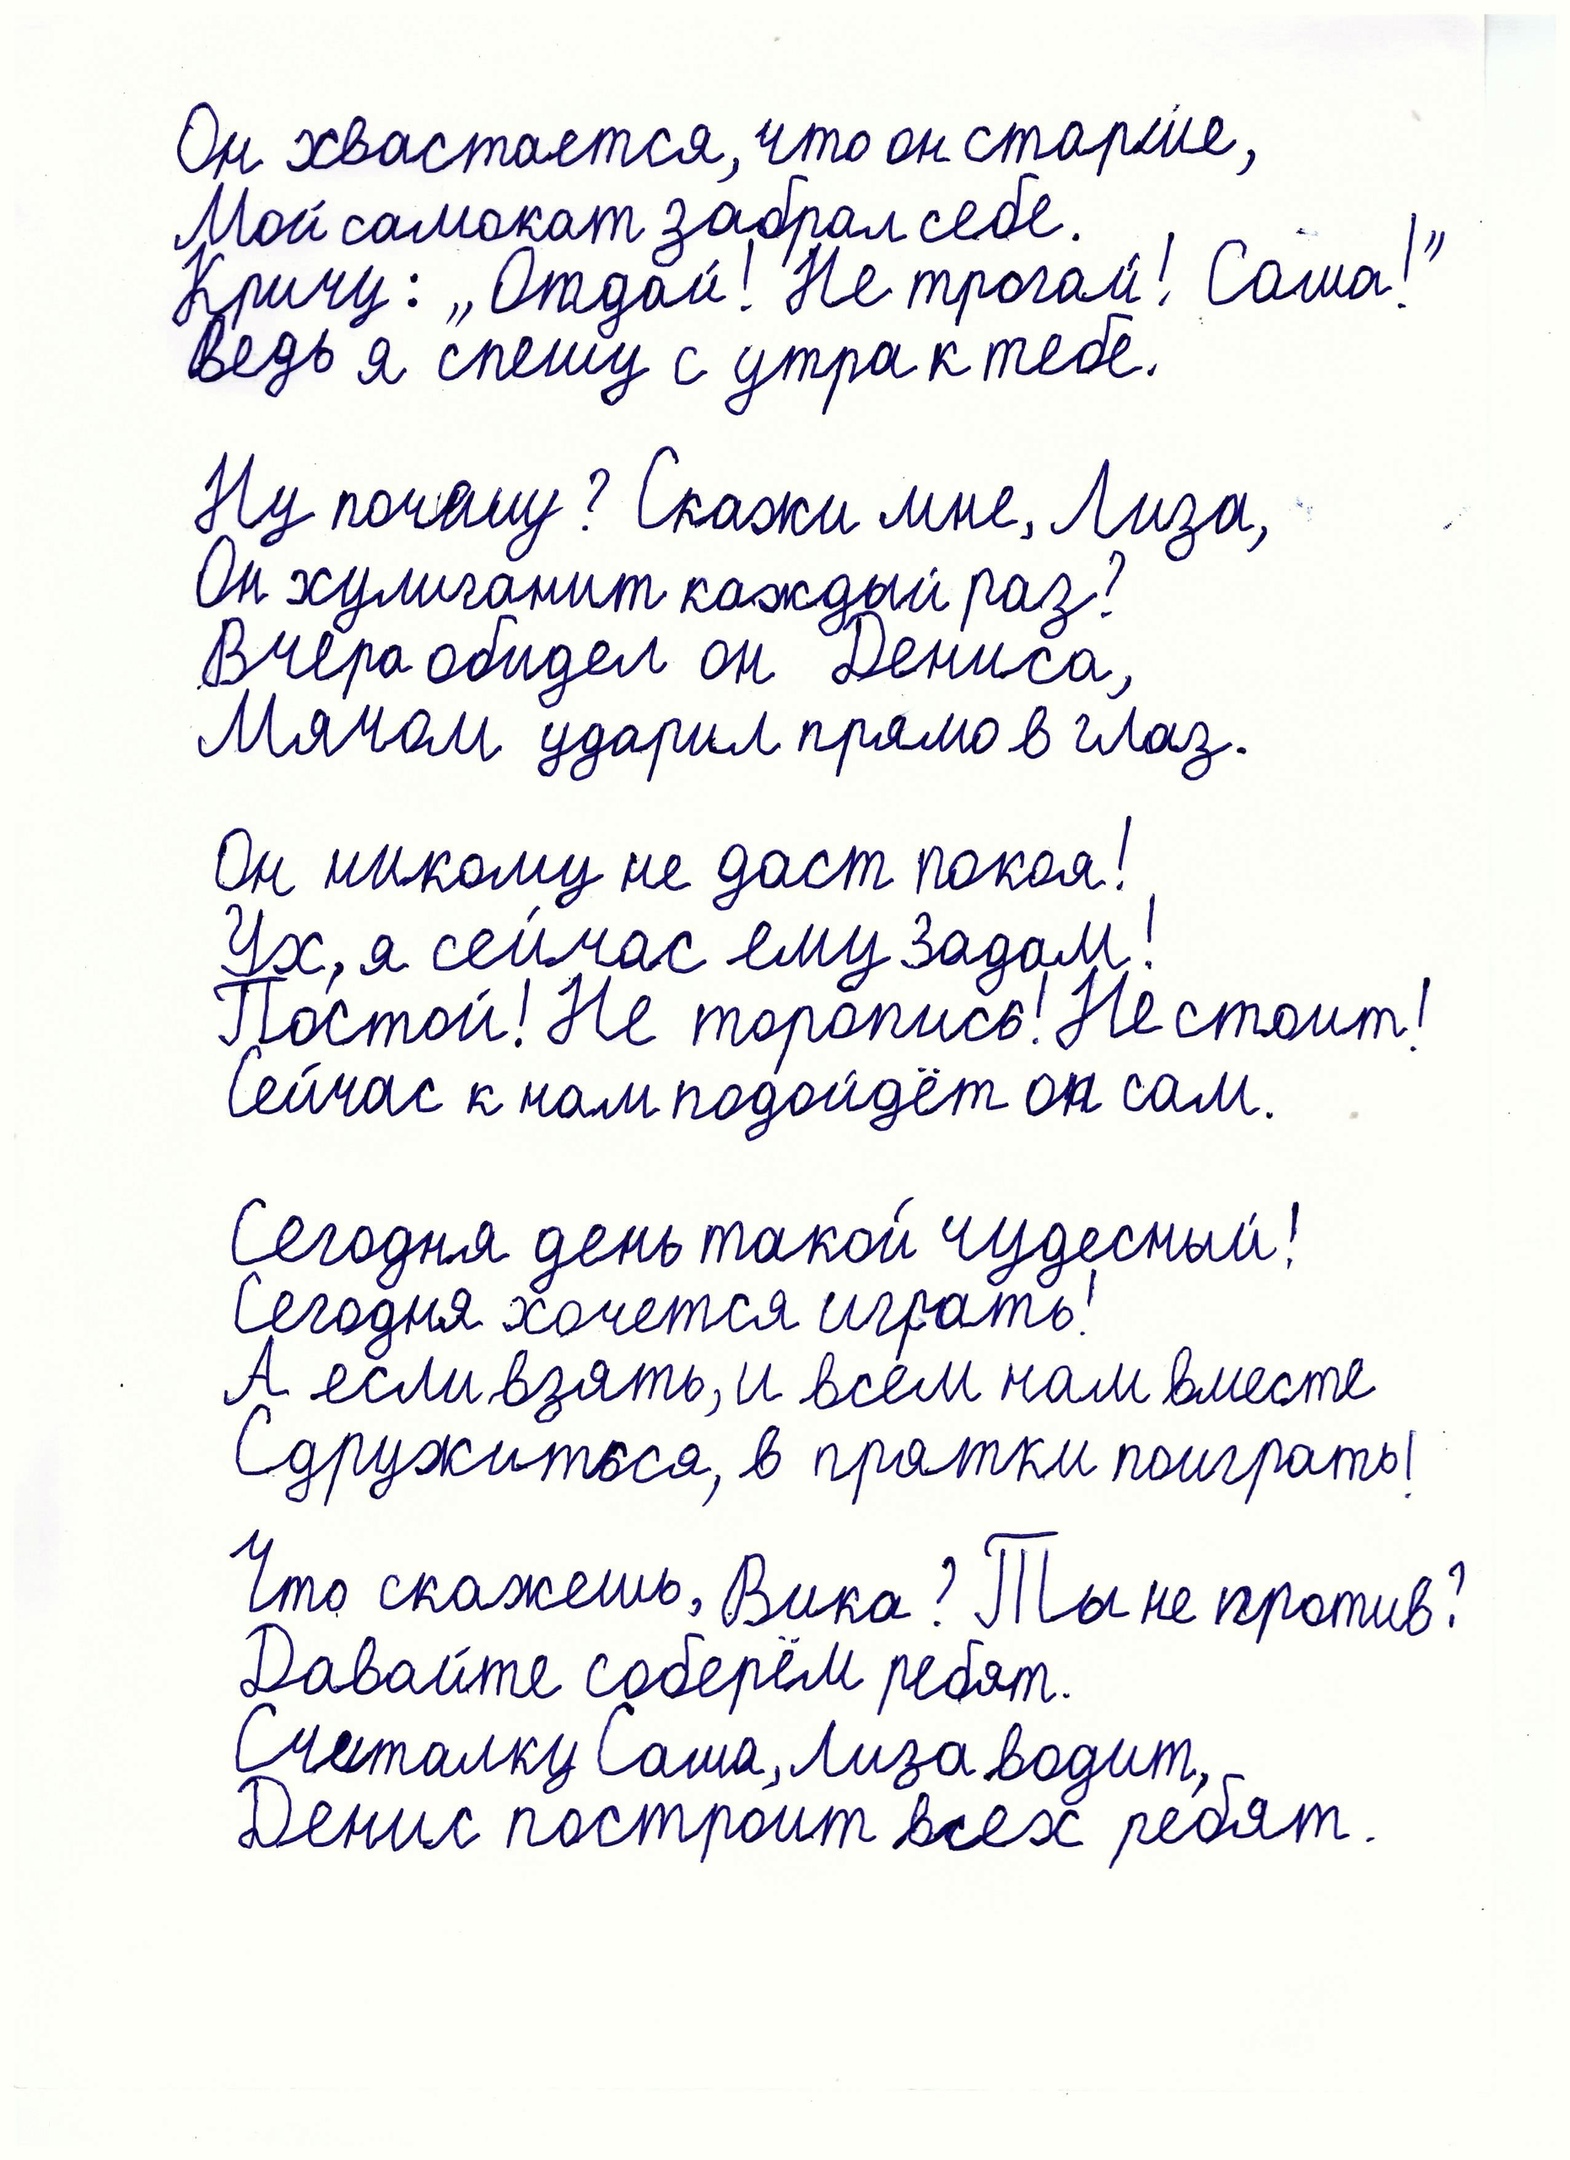 Он хвастается, что он старше,
Мой самокат забрал себе.
Кричу: „Отдай! Не трогай! Саша!”
Ведь я спешу с утра к тебе.
Ну почему? Скажи мне, Лиза,
Он хулиганит каждый раз?
Вчера обидел он Дениса,
Мячом ударил прямо в глаз.
Он никому не даст покоя!
Ух, я сейчас ему задам!
Постой! Не торопись! Не стоит!
Сейчас к нам подойдёт он сам.
Сегодня день такой чудесный!
Сегодня хочется играть!
А если взять, и всем нам вместе
Сдружиться, в прятки поиграть!
Что скажешь, Вика? Ты не против?
Давайте соберём ребят.
Считалку Саша, Лиза водит,
Денис построит всех ребят.